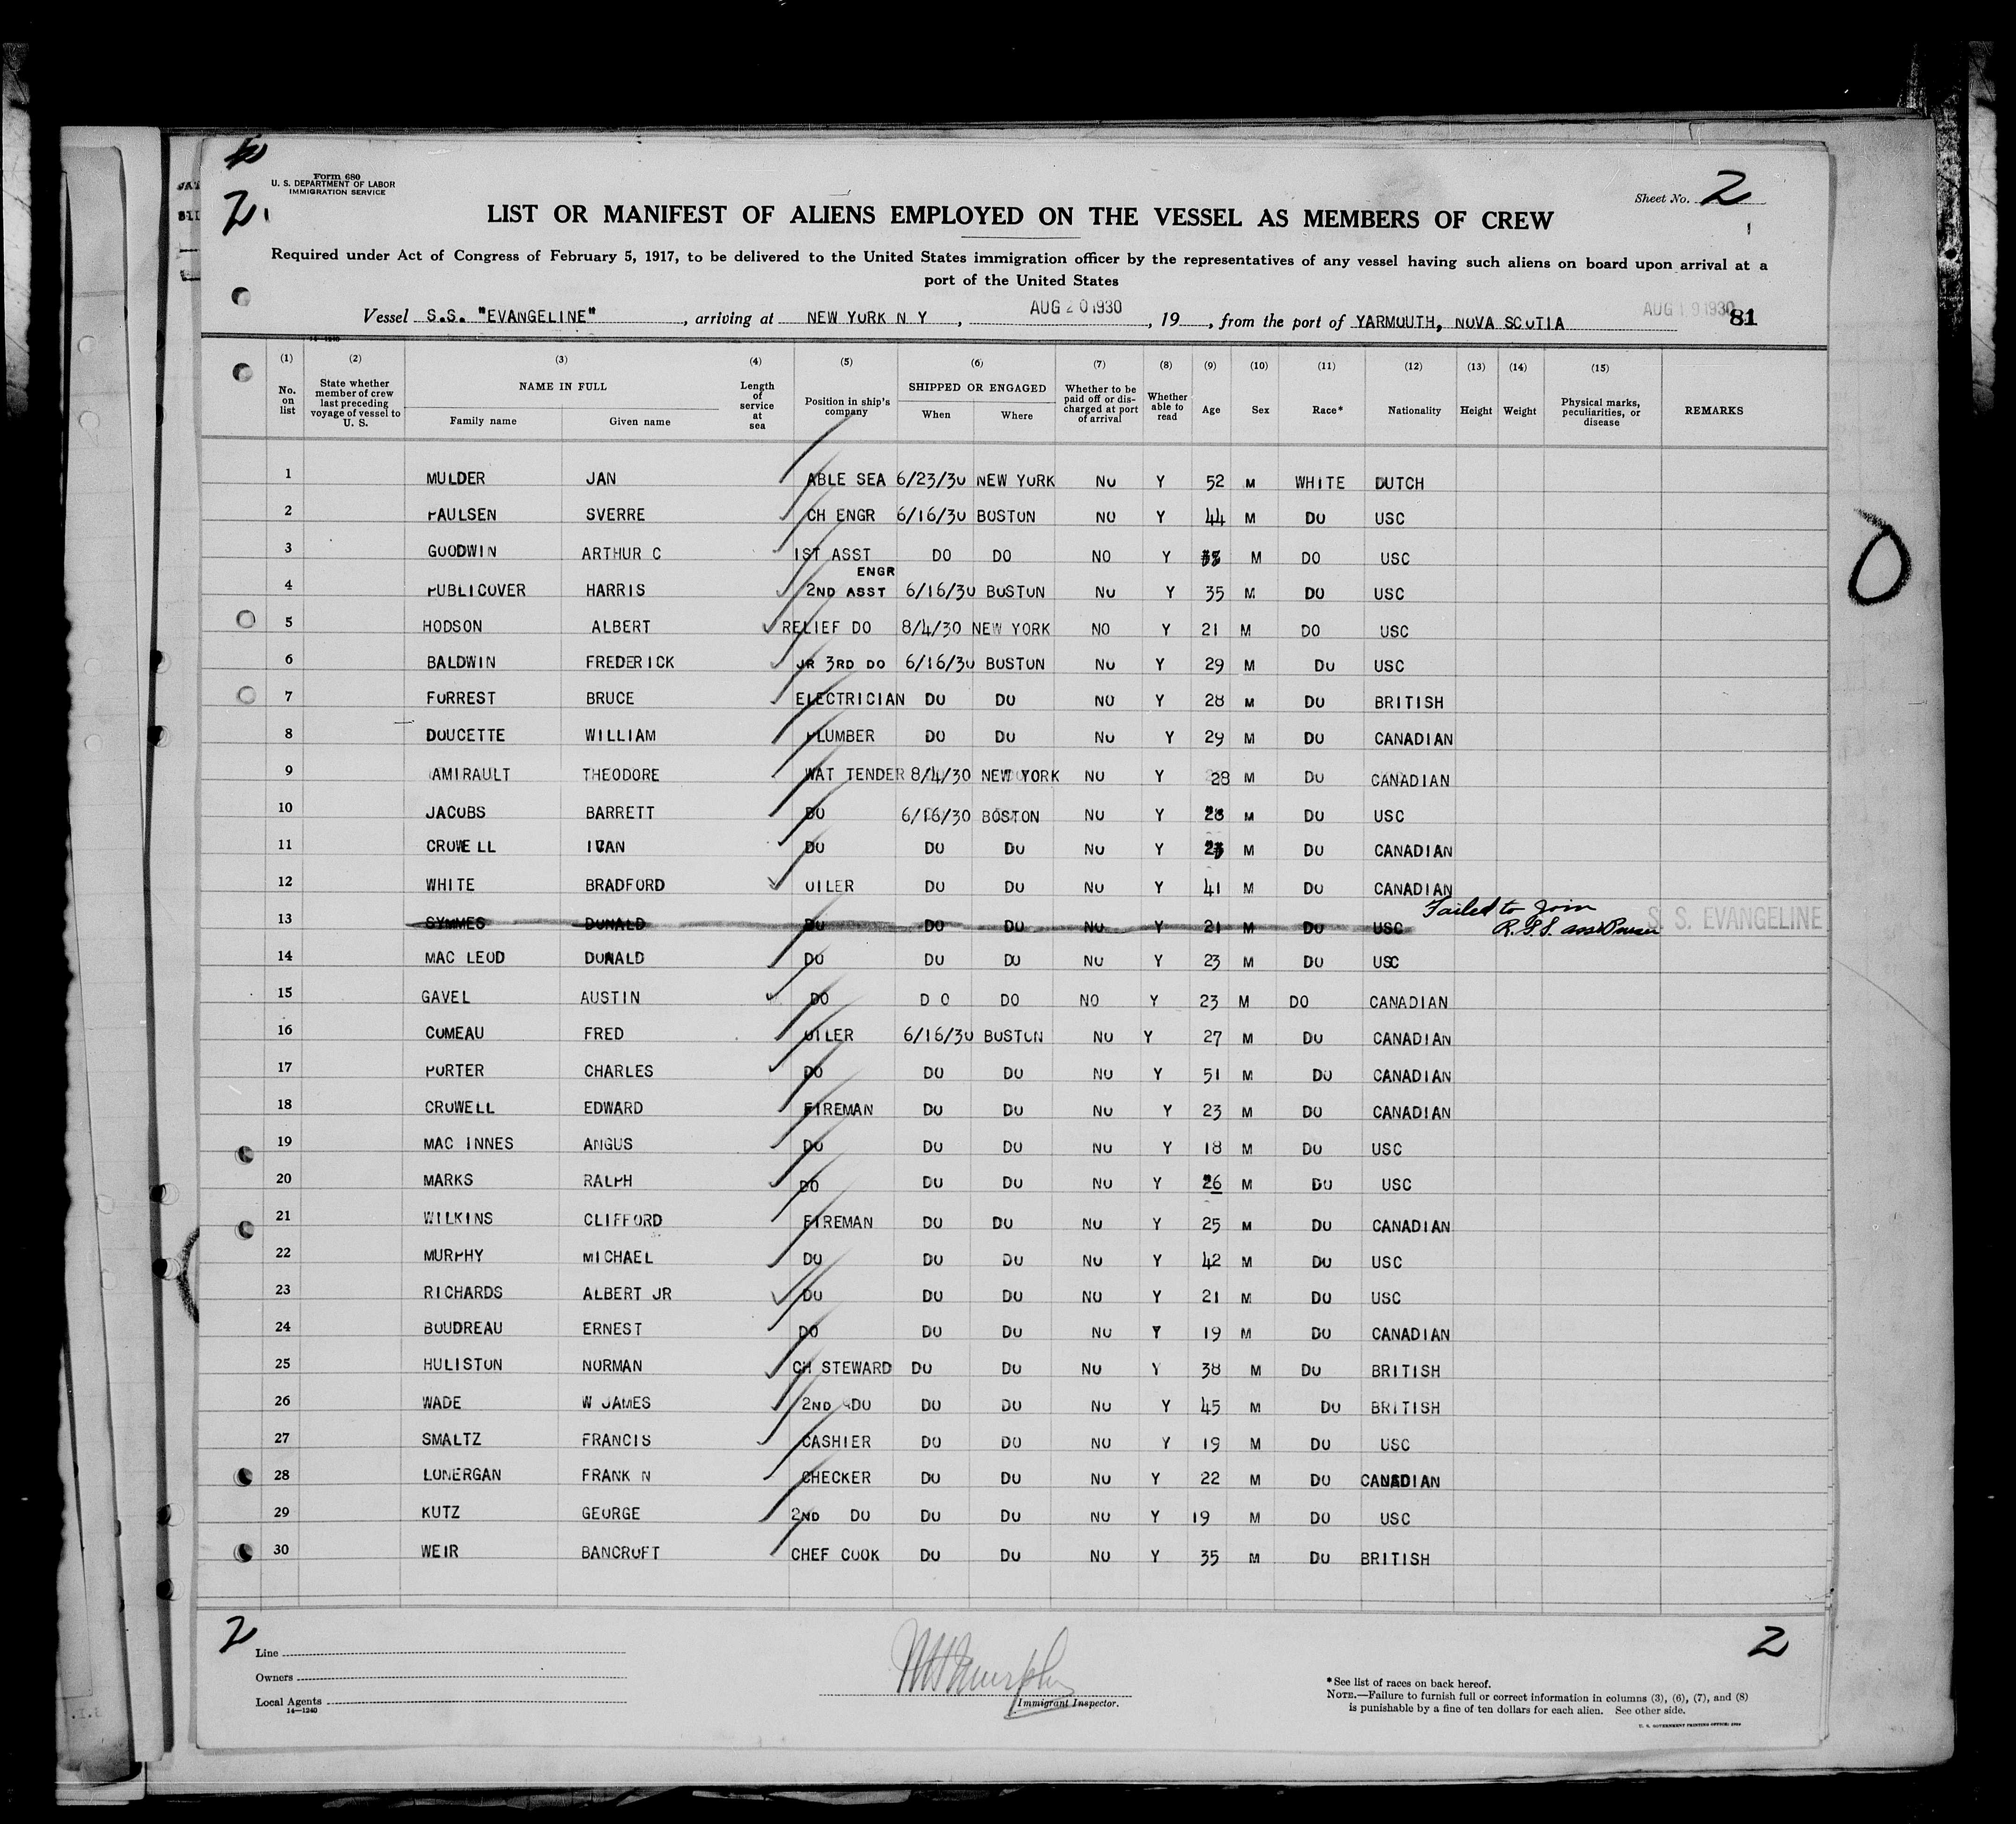 Form 680
U. S. DEPARTMENT OF LABOR
IMMIGRATION SERVICE
2
Sheet No. 2
LIST OR MANIFEST OF ALIENS EMPLOYED ON THE VESSEL AS MEMBERS OF CREW
Required under Act of Congress of February 5, 1917, to be delivered to the United States immigration officer by the representatives of any vessel having such aliens on board upon arrival at a
port of the United States
Vessel S.S. "EVANGELINE", arriving at NEW YORK N Y, AUG 20 1930, 19, from the port of YARMOUTH, NOVA SCOTIA AUG 19 1930 81
(1) No. on list (2) State whether member of crew last preceding voyage of vessel to U. S. (3) NAME IN FULL Family name Given name (4) Length of service at sea (5) Position in ship's company (6) SHIPPED OR ENGAGED When Where (7) Whether to be paid off or discharged at port of arrival (8) Whether able to read (9) Age (10) Sex (11) Race* (12) Nationality (13) Height (14) Weight (15) Physical marks, peculiarities, or disease REMARKS
1 MULDER JAN ABLE SEA 6/23/30 NEW YORK NO Y 52 M WHITE DUTCH
2 PAULSEN SVERRE CH ENGR 6/16/30 BOSTON NO Y 44 M DO USC
3 GOODWIN ARTHUR C 1ST ASST DO DO NO Y M DO USC
ENGR
4 PUBLICOVER HARRIS 2ND ASST 6/16/30 BOSTON NO Y 35 M DO USC
5 HODSON ALBERT RELIEF DO 8/4/30 NEW YORK NO Y 21 M DO USC
6 BALDWIN FREDERICK JR 3RD DO 6/16/30 BOSTON NO Y 29 M DO USC
7 FORREST BRUCE ELECTRICIAN DO DO NO Y 28 M DO BRITISH
8 DOUCETTE WILLIAM PLUMBER DO DO NO Y 29 M DO CANADIAN
9 AMIRAULT THEODORE WAT TENDER 8/4/30 NEW YORK NO Y 28 M DO CANADIAN
10 JACOBS BARRETT DO 6/16/30 BOSTON NO Y 28 M DO USC
11 CROWELL IVAN DO DO DO NO Y M DO CANADIAN
12 WHITE BRADFORD OILER DO DO NO Y 41 M DO CANADIAN
13 SYMMES DONALD DO DO DO NO Y 21 M DO USC Failed to join S. S. EVANGELINE
14 MAC LEOD DONALD DO DO DO NO Y 23 M DO USC
15 GAVEL AUSTIN DO D O DO NO Y 23 M DO CANADIAN
16 COMEAU FRED OILER 6/16/30 BOSTON NO Y 27 M DO CANADIAN
17 PORTER CHARLES DO DO DO NO Y 51 M DO CANADIAN
18 CROWELL EDWARD FIREMAN DO DO NO Y 23 M DO CANADIAN
19 MAC INNES ANGUS DO DO DO NO Y 18 M DO USC
20 MARKS RALPH DO DO DO NO Y 26 M DO USC
21 WILKINS CLIFFORD FIREMAN DO DO NO Y 25 M DO CANADIAN
22 MURPHY MICHAEL DO DO DO NO Y 42 M DO USC
23 RICHARDS ALBERT JR DO DO DO NO Y 21 M DO USC
24 BOUDREAU ERNEST DO DO DO NO Y 19 M DO CANADIAN
25 HULISTON NORMAN CH STEWARD DO DO NO Y 38 M DO BRITISH
26 WADE W JAMES 2ND DO DO DO NO Y 45 M DO BRITISH
27 SMALTZ FRANCIS CASHIER DO DO NO Y 19 M DO USC
28 LONERGAN FRANK N CHECKER DO DO NO Y 22 M DO CANADIAN
29 KUTZ GEORGE 2ND DO DO DO NO Y 19 M DO USC
30 WEIR BANCROFT CHEF COOK DO DO NO Y 35 M DO BRITISH
2
2
Line
Owners
Local Agents
14—1240
Immigrant Inspector.
*See list of races on back hereof.
NOTE.—Failure to furnish full or correct information in columns (3), (6), (7), and (8)
is punishable by a fine of ten dollars for each alien. See other side.